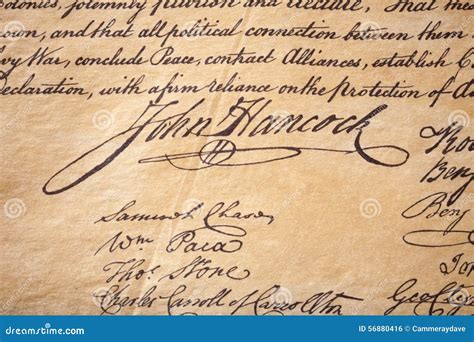 olonies, solemnly publish and declare, That the
own, and that all political connection between them
vy War, conclude Peace, contract Alliances, establish C
Declaration, with a firm reliance on the protection of
John Hancock
Samuel Chase
Wm Paca
Thos. Stone
Charles Carroll of Carrollton
Ben
Benj
Geo
dreamstime.com
ID 56880416 © Cammeraydave